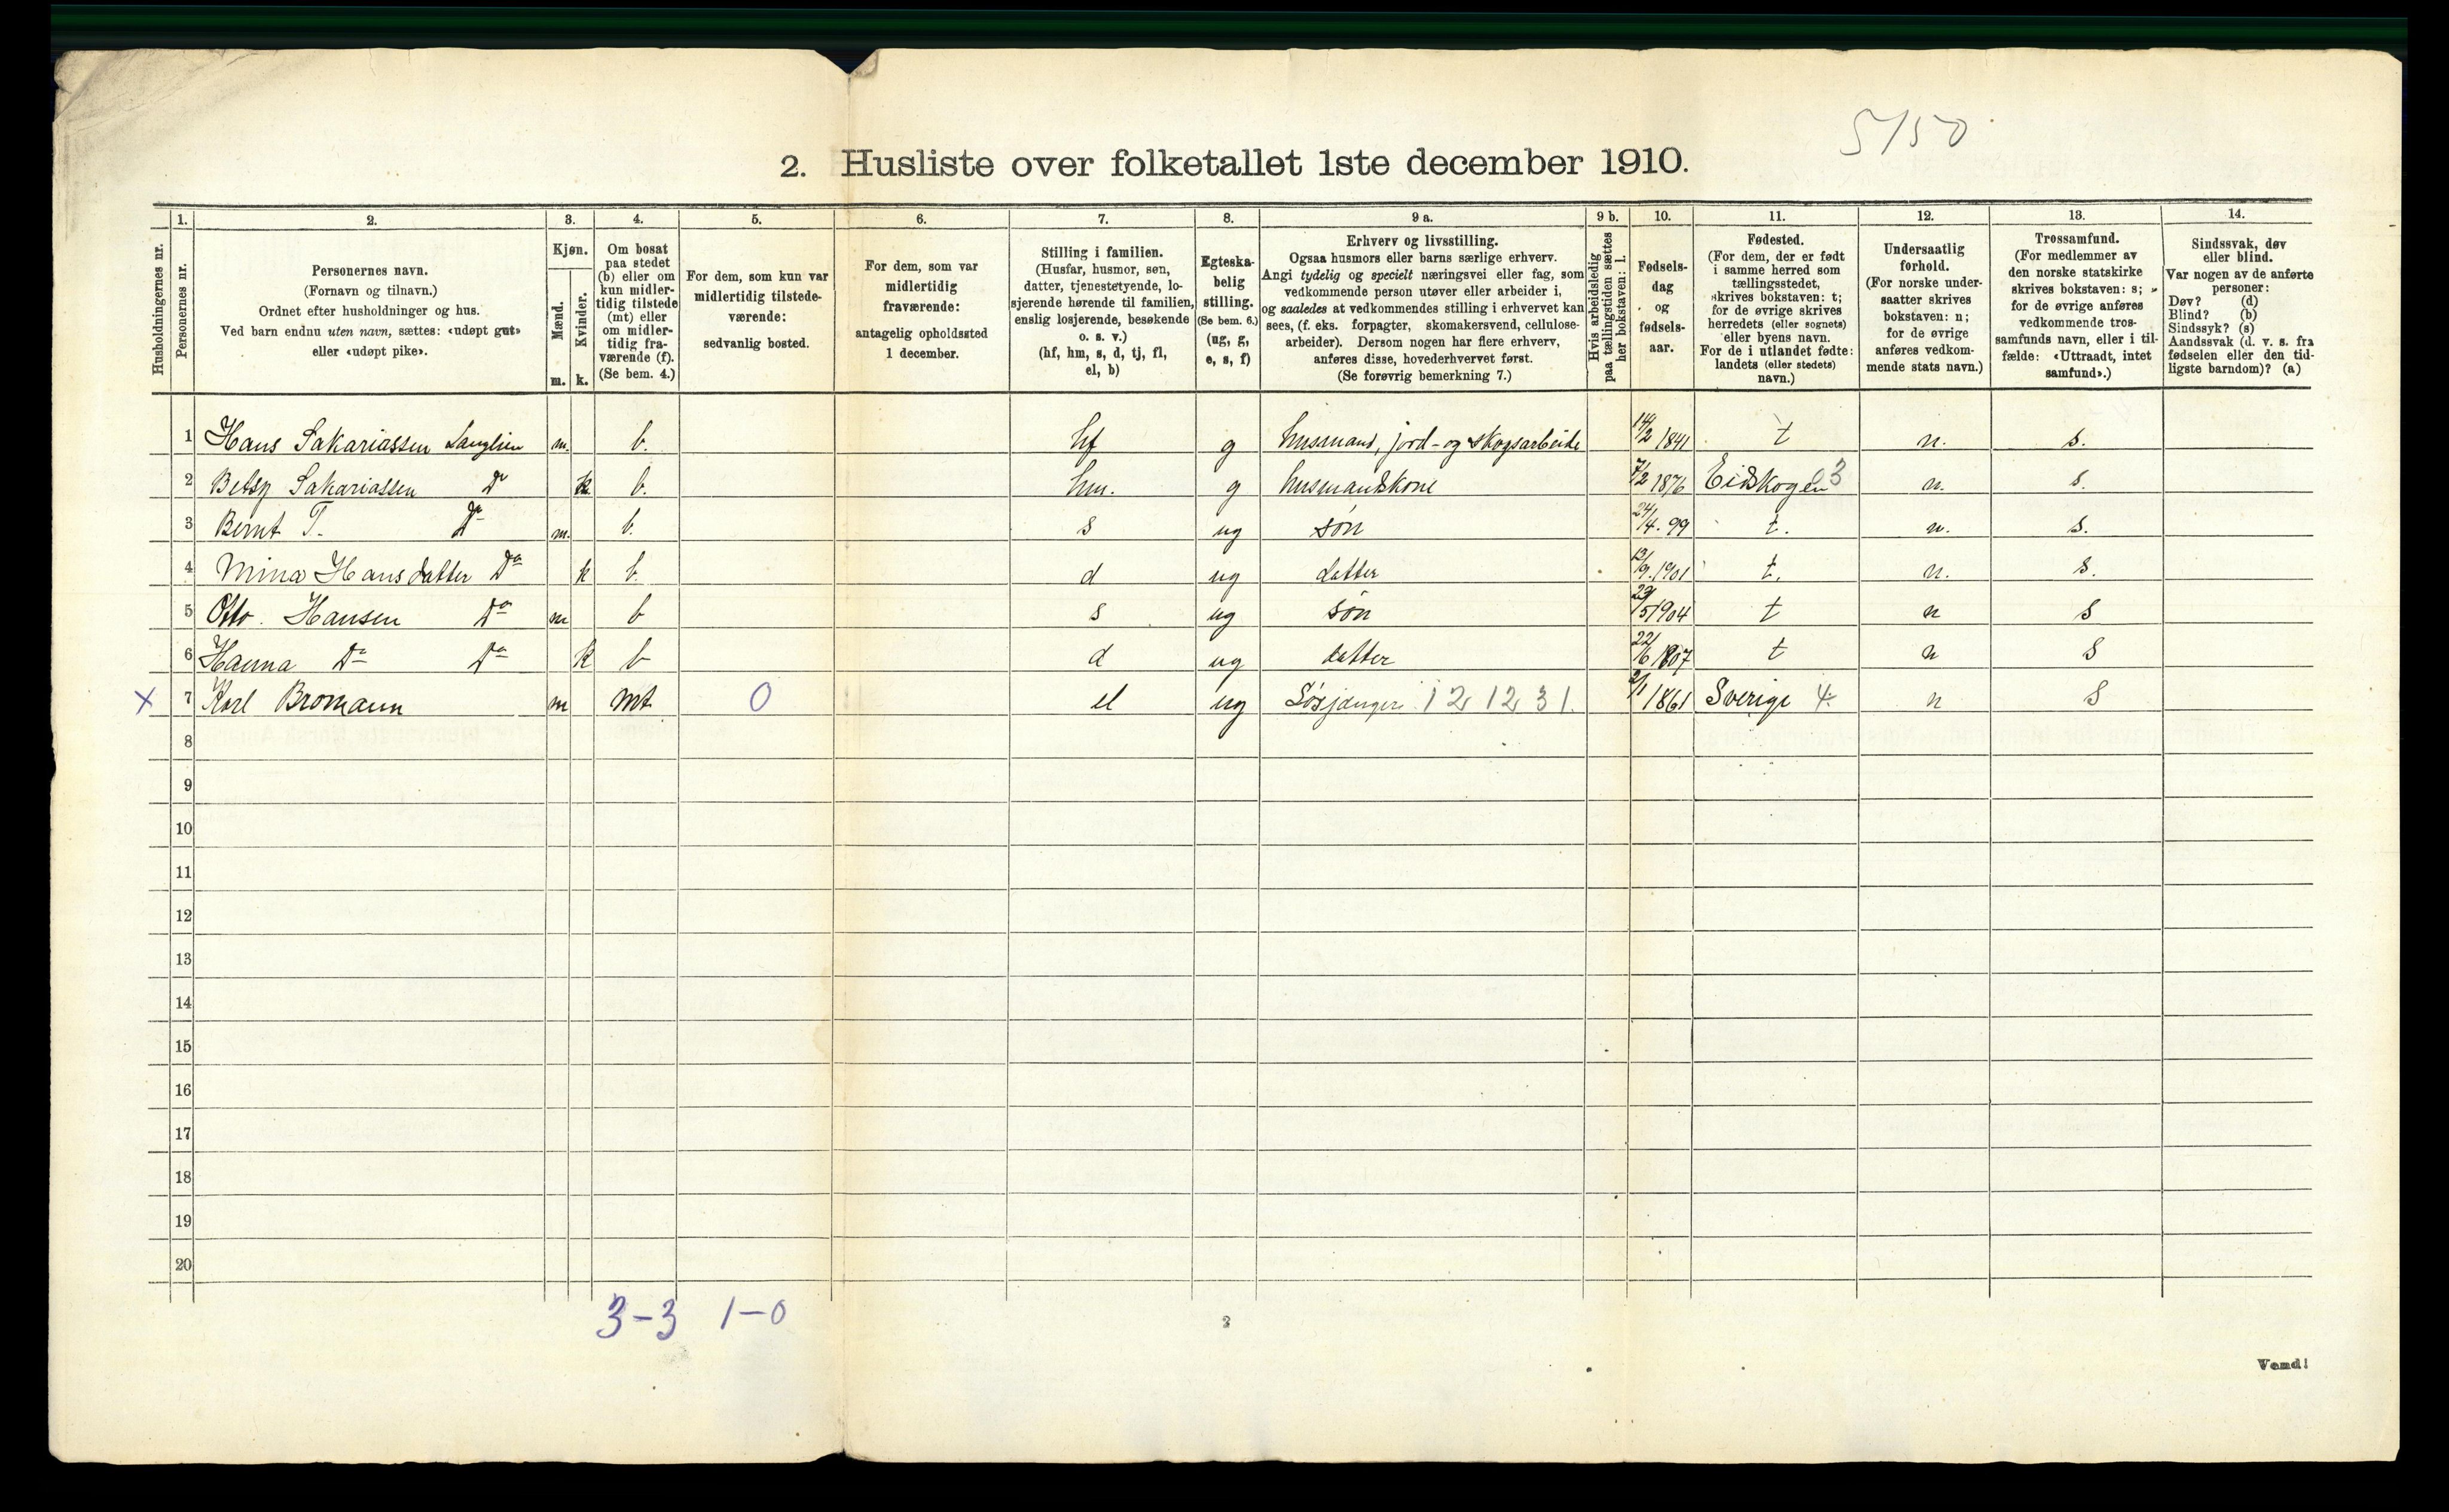 5/50
2. Husliste over folketallet 1ste december 1910.
Husholdningernes nr.
1.
Personernes nr.
2.
Personernes navn.
(Fornavn og tilnavn.)
Ordnet efter husholdninger og hus.
Ved barn endnu uten navn, sættes: «udøpt gut»
eller «udøpt pike».
3.
Kjøn.
Mænd.
Kvinder.
m. k.
4.
Om bosat
paa stedet
(b) eller om
kun midler-
tidig tilstede
(mt) eller
om midler-
tidig fra-
værende (f).
(Se bem. 4.)
5.
For dem, som kun var
midlertidig tilstede-
værende:
sedvanlig bosted.
6.
For dem, som var
midlertidig
fraværende:
antagelig opholdssted
1 december.
7.
Stilling i familien.
(Husfar, husmor, søn,
datter, tjenestetyende, lo-
sjerende hørende til familien,
enslig losjerende, besøkende
o. s. v.)
(hf, hm, s, d, tj, fl,
el, b)
8.
Egteska-
belig
stilling.
(Se bem. 6.)
(ug, g,
e, s, f)
9 a.
Erhverv og livsstilling.
Ogsaa husmors eller barns særlige erhverv.
Angi tydelig og specielt næringsvei eller fag, som
vedkommende person utøver eller arbeider i,
og saaledes at vedkommendes stilling i erhvervet kan
sees, (f. eks. forpagter, skomakersvend, cellulose-
arbeider). Dersom nogen har flere erhverv,
anføres disse, hovederhvervet først.
(Se forøvrig bemerkning 7.)
9 b.
Hvis arbeidsledig
paa tællingstiden sættes
her bokstaven: l.
10.
Fødsels-
dag
og
fødsels-
aar.
11.
Fødested.
(For dem, der er født
i samme herred som
tællingsstedet,
skrives bokstaven: t;
for de øvrige skrives
herredets (eller sognets)
eller byens navn.
For de i utlandet fødte:
landets (eller stedets)
navn.)
12.
Undersaatlig
forhold.
(For norske under-
saatter skrives
bokstaven: n;
for de øvrige
anføres vedkom-
mende stats navn.)
13.
Trossamfund.
(For medlemmer av
den norske statskirke
skrives bokstaven: s;
for de øvrige anføres
vedkommende tros-
samfunds navn, eller i til-
fælde: «Uttraadt, intet
samfund».)
14.
Sindssvak, døv
eller blind.
Var nogen av de anførte
personer:
Døv? (d)
Blind? (b)
Sindssyk? (s)
Aandssvak (d. v. s. fra
fødselen eller den tid-
ligste barndom)? (a)
1 Hans Sakariassen Langlien m. b. hf g husmand, jord- og skogsarbeide 14/2 1841 t n. s.
2 Betsy Sakariassen Do k b. hm. g husmandskone 7/2 1876 Eidskogen 3 n. s.
3 Bernt T. Do m. b. s ug søn 24/4. 99 t. n. s.
4 Mina Hansdatter Do k b. d ug datter 13/9. 1901 t. n. s.
5 Otto. Hansen Do m b s ug søn 29/5 1904 t n s
6 Hanna Do Do k b d ug datter 22/6 1807 t n s
X 7 Karl Bromann m mt 0 el ug Løsjænger 12 12 31. 2/1 1861 Sverige 4 n s
8
9
10
11
12
13
14
15
16
17
18
19
20
3-3 1-0
2
Vend!